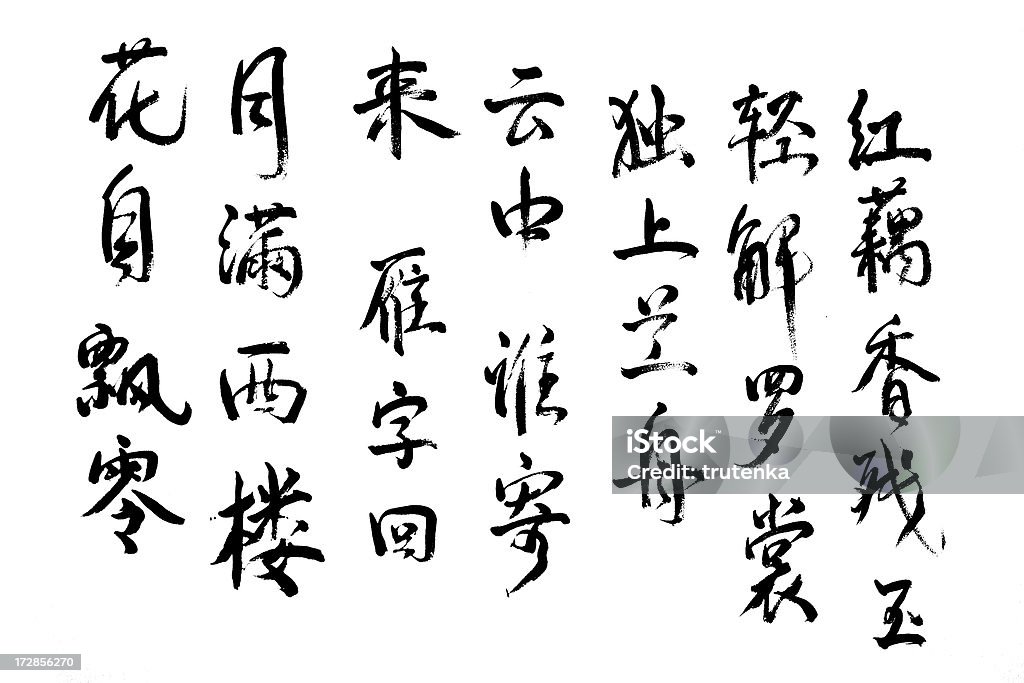 红藕香残玉
轻解罗裳
独上兰舟
云中谁寄
来雁字回
月满西楼
花自飘零
iStock™
Credit: trutenka
172856270